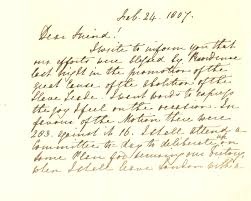 Feb. 24. 1807.
Dear Friend!
I write to inform you that
our efforts were blessed by Providence
last night in the promotion of the
great Cause of the abolition of the
Slave Trade. I want words to express
the joy I feel on the occasion. In
favour of the Motion there were
283. against it 16. I shall attend a
Committee to day to deliberate on
some Plan for our Victory,
when I shall leave London